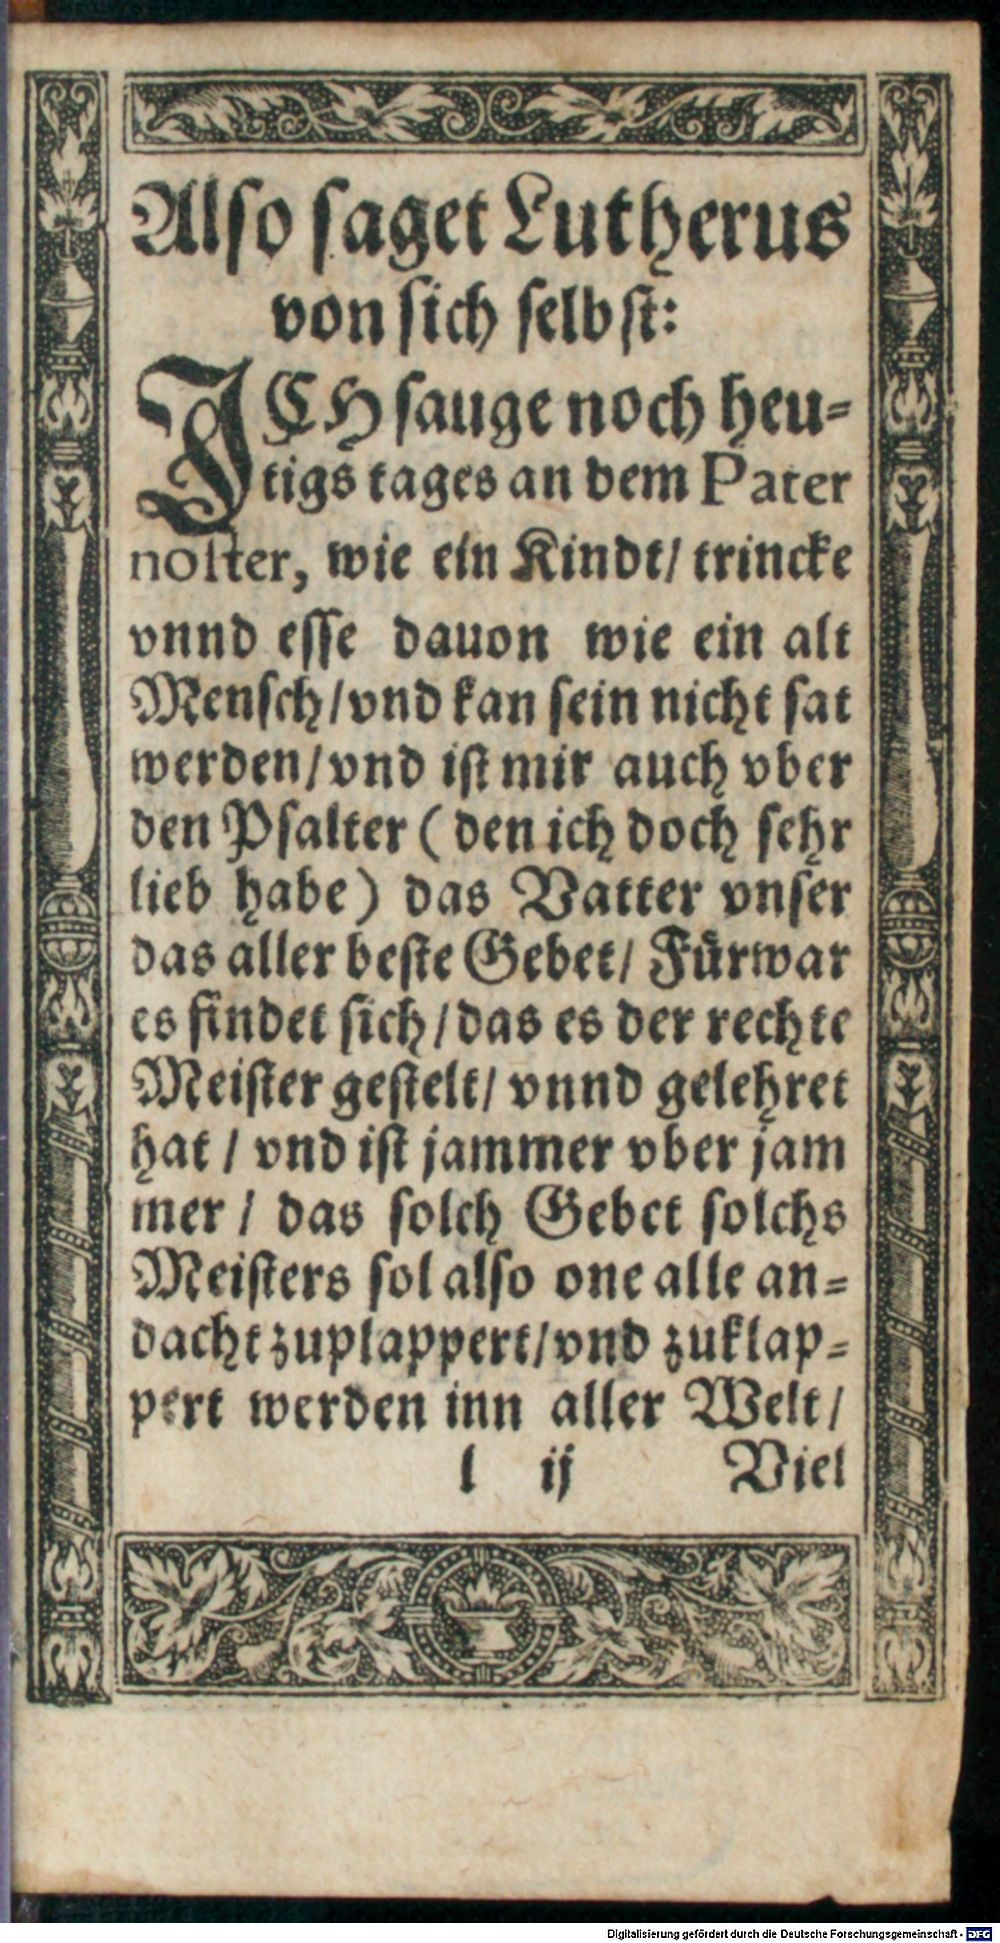 Also saget Lutherus
von sich selbst:
ICH sauge noch heu-
tigs tages an dem Pater
noster, wie ein Kindt/ trincke
vnnd esse dauon wie ein alt
Mensch/vnd kan sein nicht sat
werden/vnd ist mir auch vber
den Psalter (den ich doch sehr
lieb habe) das Vatter vnser
das aller beste Gebet/ Fürwar
es findet sich/das es der rechte
Meister gestelt/ vnnd gelehret
hat / vnd ist jammer vber jam
mer / das solch Gebet solchs
Meisters sol also one alle an-
dacht zuplappert/vnd zuklap-
pert werden inn aller Welt/
l ij Viel
Digitalisierung gefördert durch die Deutsche Forschungsgemeinschaft - DFG